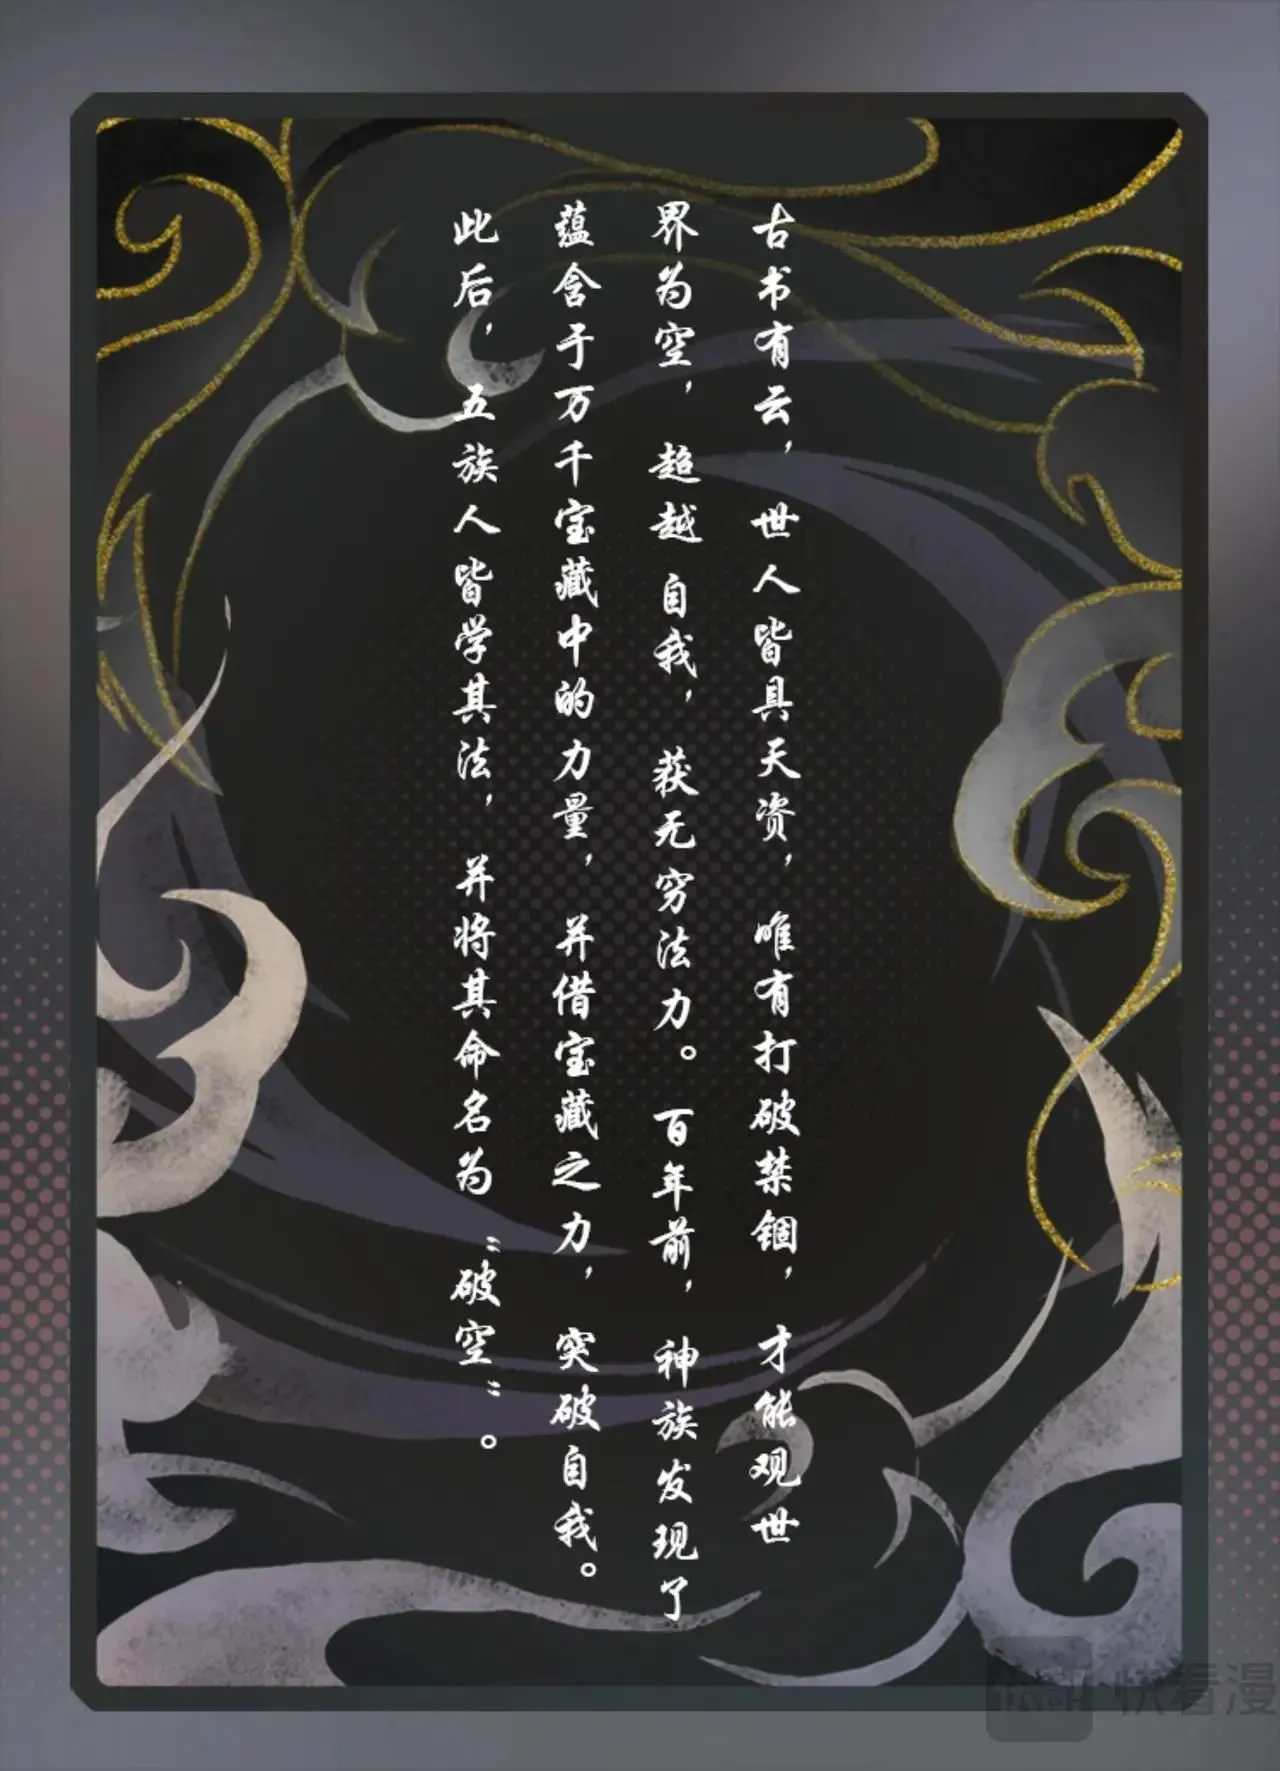 古书有云，世人皆具天资，唯有打破禁锢，才能观世
界为空，超越自我，获无穷法力。百年前，神族发现了
蕴含于万千宝藏中的力量，并借宝藏之力，突破自我。
此后，五族人皆学其法，并将其命名为“破空”。
快看漫